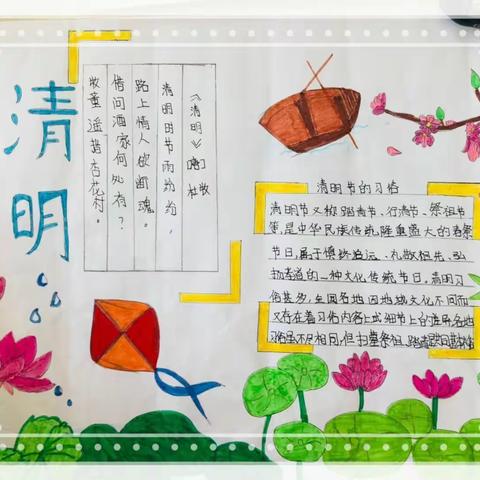 清明
《清明》[唐]杜牧
清明时节雨纷纷，
路上情人欲断魂。
借问酒家何处有？
牧童遥指杏花村。
清明节的习俗
清明节又称踏青节、行清节、祭祖节
等，是中华民族传统隆重盛大的春祭
节日，属于慎终追远、礼敬祖先、弘
扬孝道的一种文化传统节日，清明习
俗甚多，全国各地因地域文化不同而
又存在着习俗内容上或细节上的差异，各地
习俗虽不尽相同，但扫墓祭祖、踏青